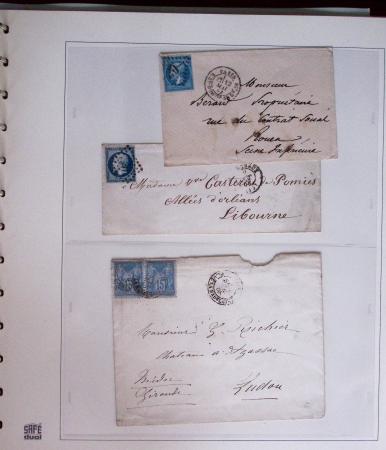 Monsieur
Bérard Propriétaire
rue du Contrat Social
Rouen
Seine Inférieure
à Madame Vve Casteran de Pomiès
Allées d'orléans
Libourne
15
Monsieur Richier
Médoc
Gironde
Ludon
SAFE
dual